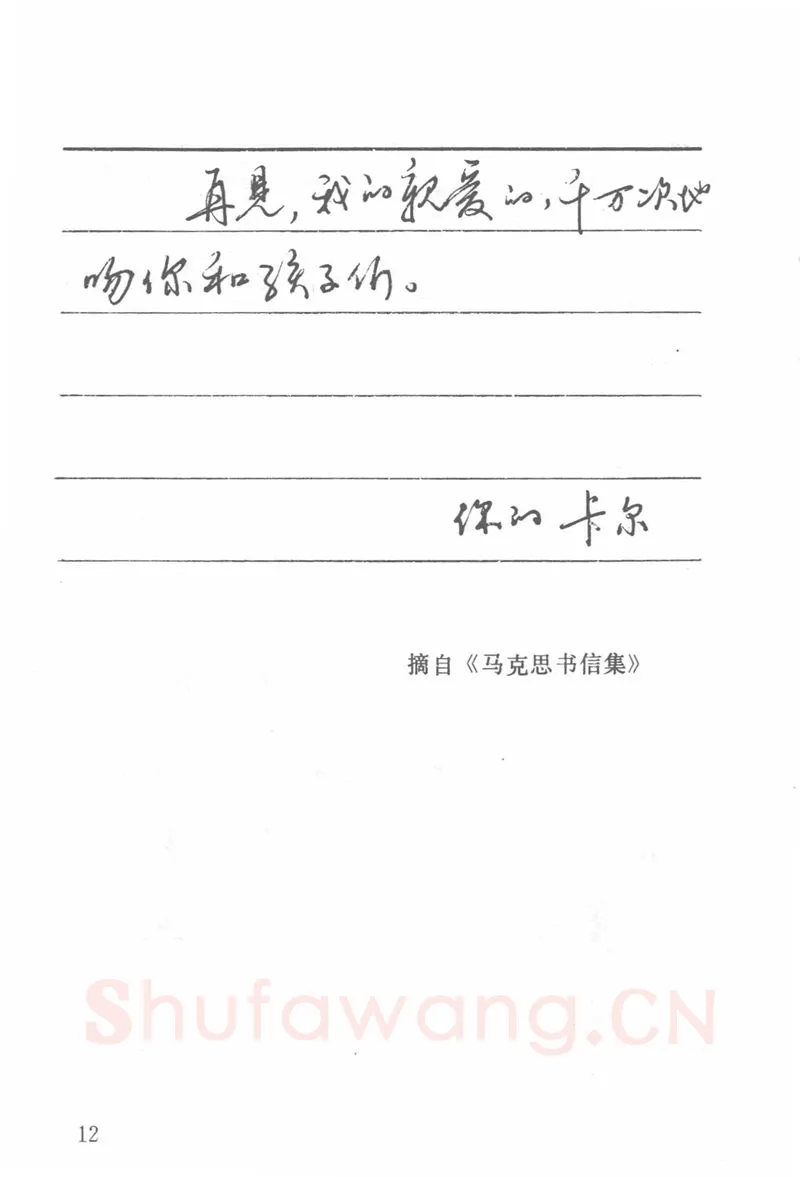 再见，我的亲爱的，千万次地
吻你和孩子们。
你的 卡尔
摘自《马克思书信集》
Shufawang.CN
12